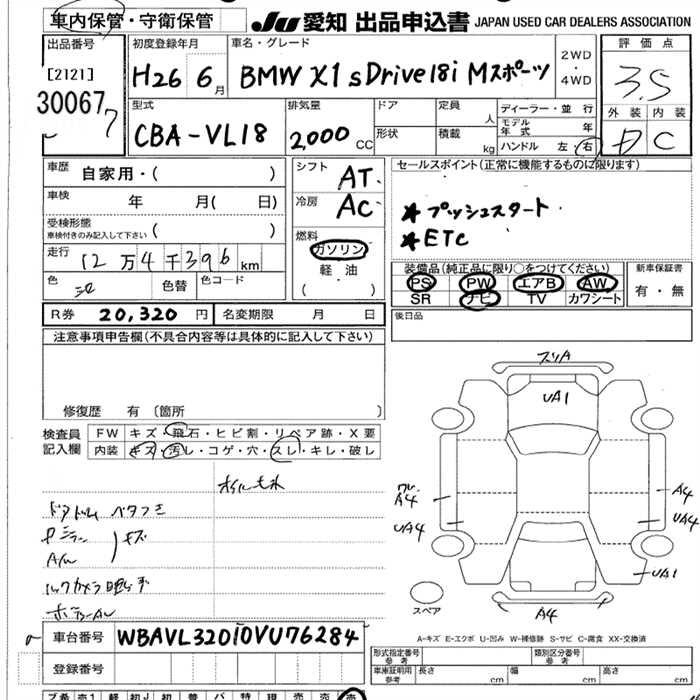 車内保管・守衛保管
JU 愛知 出品申込書 JAPAN USED CAR DEALERS ASSOCIATION
出品番号
[2121]
30067
7
初度登録年月
H26 6月
車名・グレード
BMW X1 sDrive18i Mスポーツ
2WD
・
4WD
評価点
3.5
外装 内装
D C
型式
CBA-VL18
排気量
2,000 CC
ドア
形状
定員 人
積載 kg
ディーラー・並行
モデル年式 年
ハンドル 左・右
車歴 自家用・( )
車検 年 月( 日)
受検形態
車検付きのみ記入して下さい ( )
走行 12万4千396km
色
色替
色コード
シフト
AT
冷房
AC
燃料
ガソリン
軽油
( )
セールスポイント(正常に機能するものに限ります)
★プッシュスタート
★ETC
装備品(純正品に限り○をつけてください)
PS PW エアB AW
SR ナビ TV カワシート
新車保証書
有・無
R券 20,320円
名変期限 月 日
後日品
注意事項申告欄(不具合内容等は具体的に記入して下さい)
修復歴 有 〔箇所 〕
検査員
記入欄
FW キズ・飛石・ヒビ割・リペア跡・X要
内装 キズ・汚レ・コゲ・穴・スレ・キレ・破レ
ベタつき
キズ
A/W
スリA
UA1
A4
UA4
A4
UA4
UA1
A4
スペア
A-キズ E-エクボ U-凹み W-補修跡 S-サビ C-腐食 XX-交換済
車台番号 WBAVL32010VU76284
登録番号
形式指定番号
参考
類別区分番号
参考
車庫証明用
参考
長さ cm
幅 cm
高さ cm